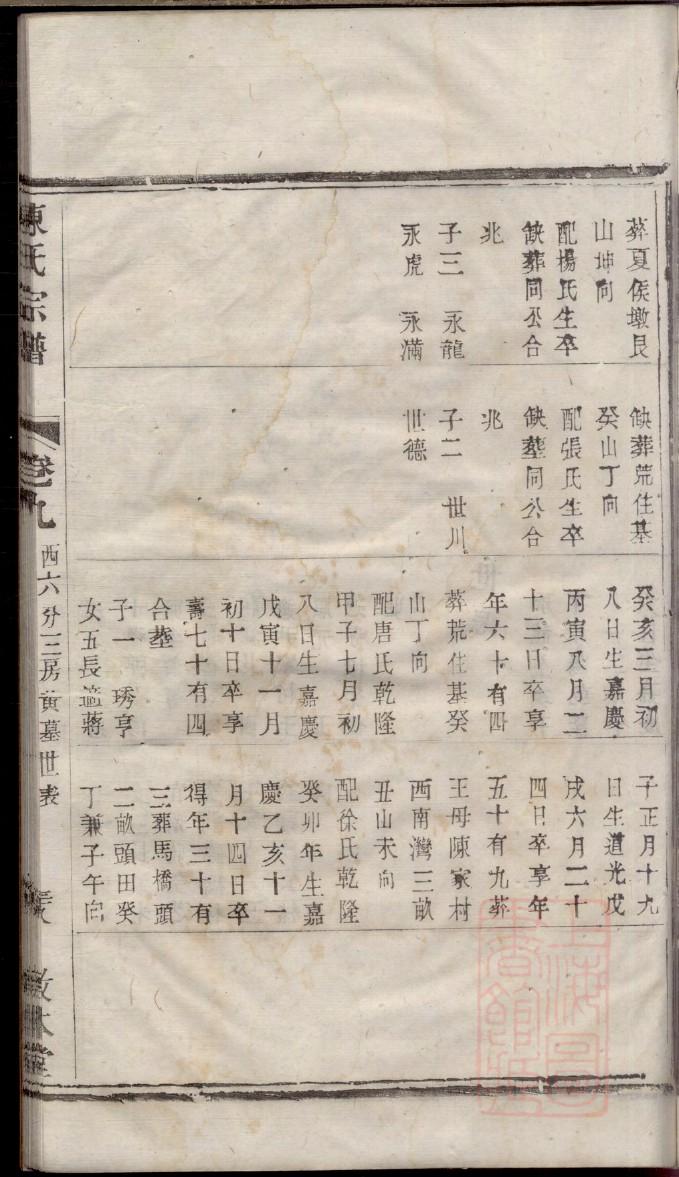 葬夏侯墩艮
山坤向
配楊氏生卒
缺葬同公合
兆
子三 永龍
永虎 永滿
缺葬荒住基
癸山丁向
配張氏生卒
缺塟同公合
兆
子二 世川
世德
癸亥三月初
八日生嘉慶
丙寅八月二
十三日卒享
年六十有四
葬荒住基癸
山丁向
配唐氏乾隆
甲子七月初
八日生嘉慶
戊寅十一月
初十日卒享
壽七十有四
合塟
子一 琇亨
女五長適蔣
子正月十九
日生道光戊
戌六月二十
四日卒享年
五十有九葬
王母陳家村
西南灣三畝
丑山未向
配徐氏乾隆
癸卯年生嘉
慶乙亥十一
月十四日卒
得年三十有
三葬馬橋頭
二畝頭田癸
丁兼子午向
陳氏宗譜
卷九
西六分三房黃墓世表
敦本堂